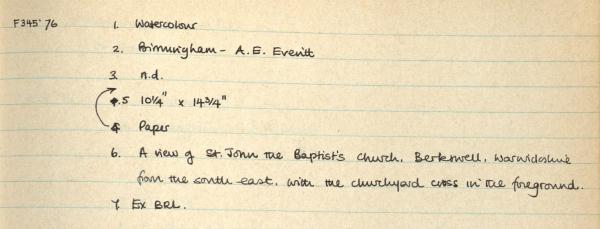 F345'76 1. Watercolour
2. Birmingham - A.E. Everitt
3. n.d.
4.5 10¼" x 14¾"
4 Paper
6. A view of St. John the Baptist's Church, Berkswell, Warwickshire
from the south east, with the churchyard cross in the foreground.
7. Ex BRL.